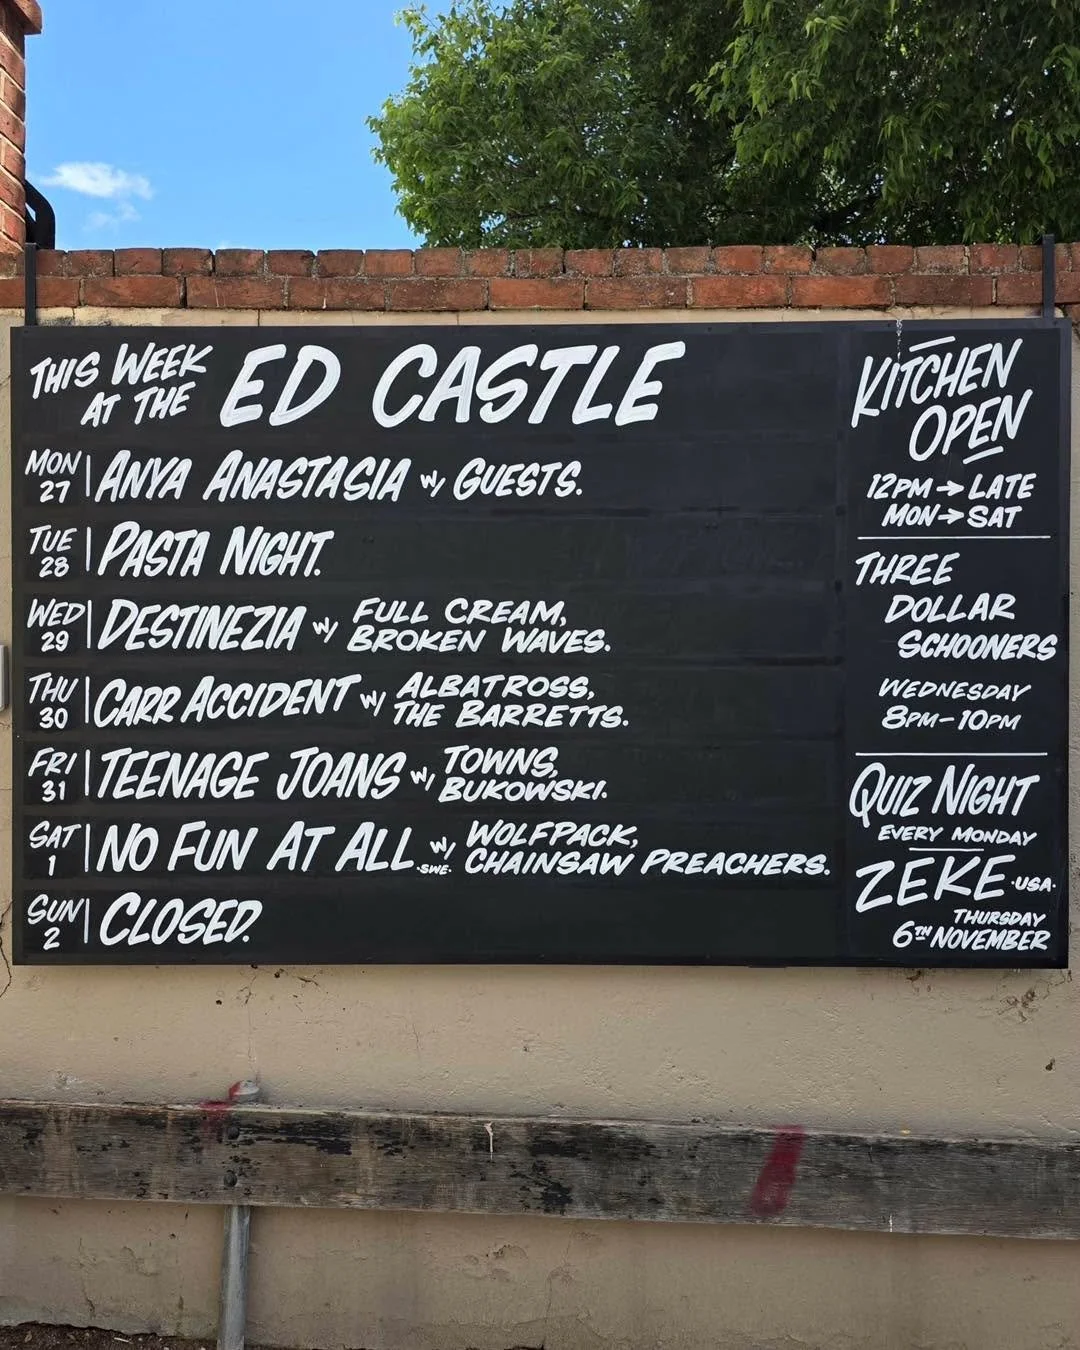 THIS WEEK
AT THE ED CASTLE
MON 27 ANYA ANASTASIA W/ GUESTS.
TUE 28 PASTA NIGHT.
WED 29 DESTINEZIA W/ FULL CREAM,
BROKEN WAVES.
THU 30 CARR ACCIDENT W/ ALBATROSS,
THE BARRETTS.
FRI 31 TEENAGE JOANS W/ TOWNS,
BUKOWSKI.
SAT 1 NO FUN AT ALL .SWE. W/ WOLFPACK,
CHAINSAW PREACHERS.
SUN 2 CLOSED.
KITCHEN
OPEN
12PM → LATE
MON → SAT
THREE
DOLLAR
SCHOONERS
WEDNESDAY
8PM-10PM
QUIZ NIGHT
EVERY MONDAY
ZEKE ·USA·
THURSDAY
6TH NOVEMBER